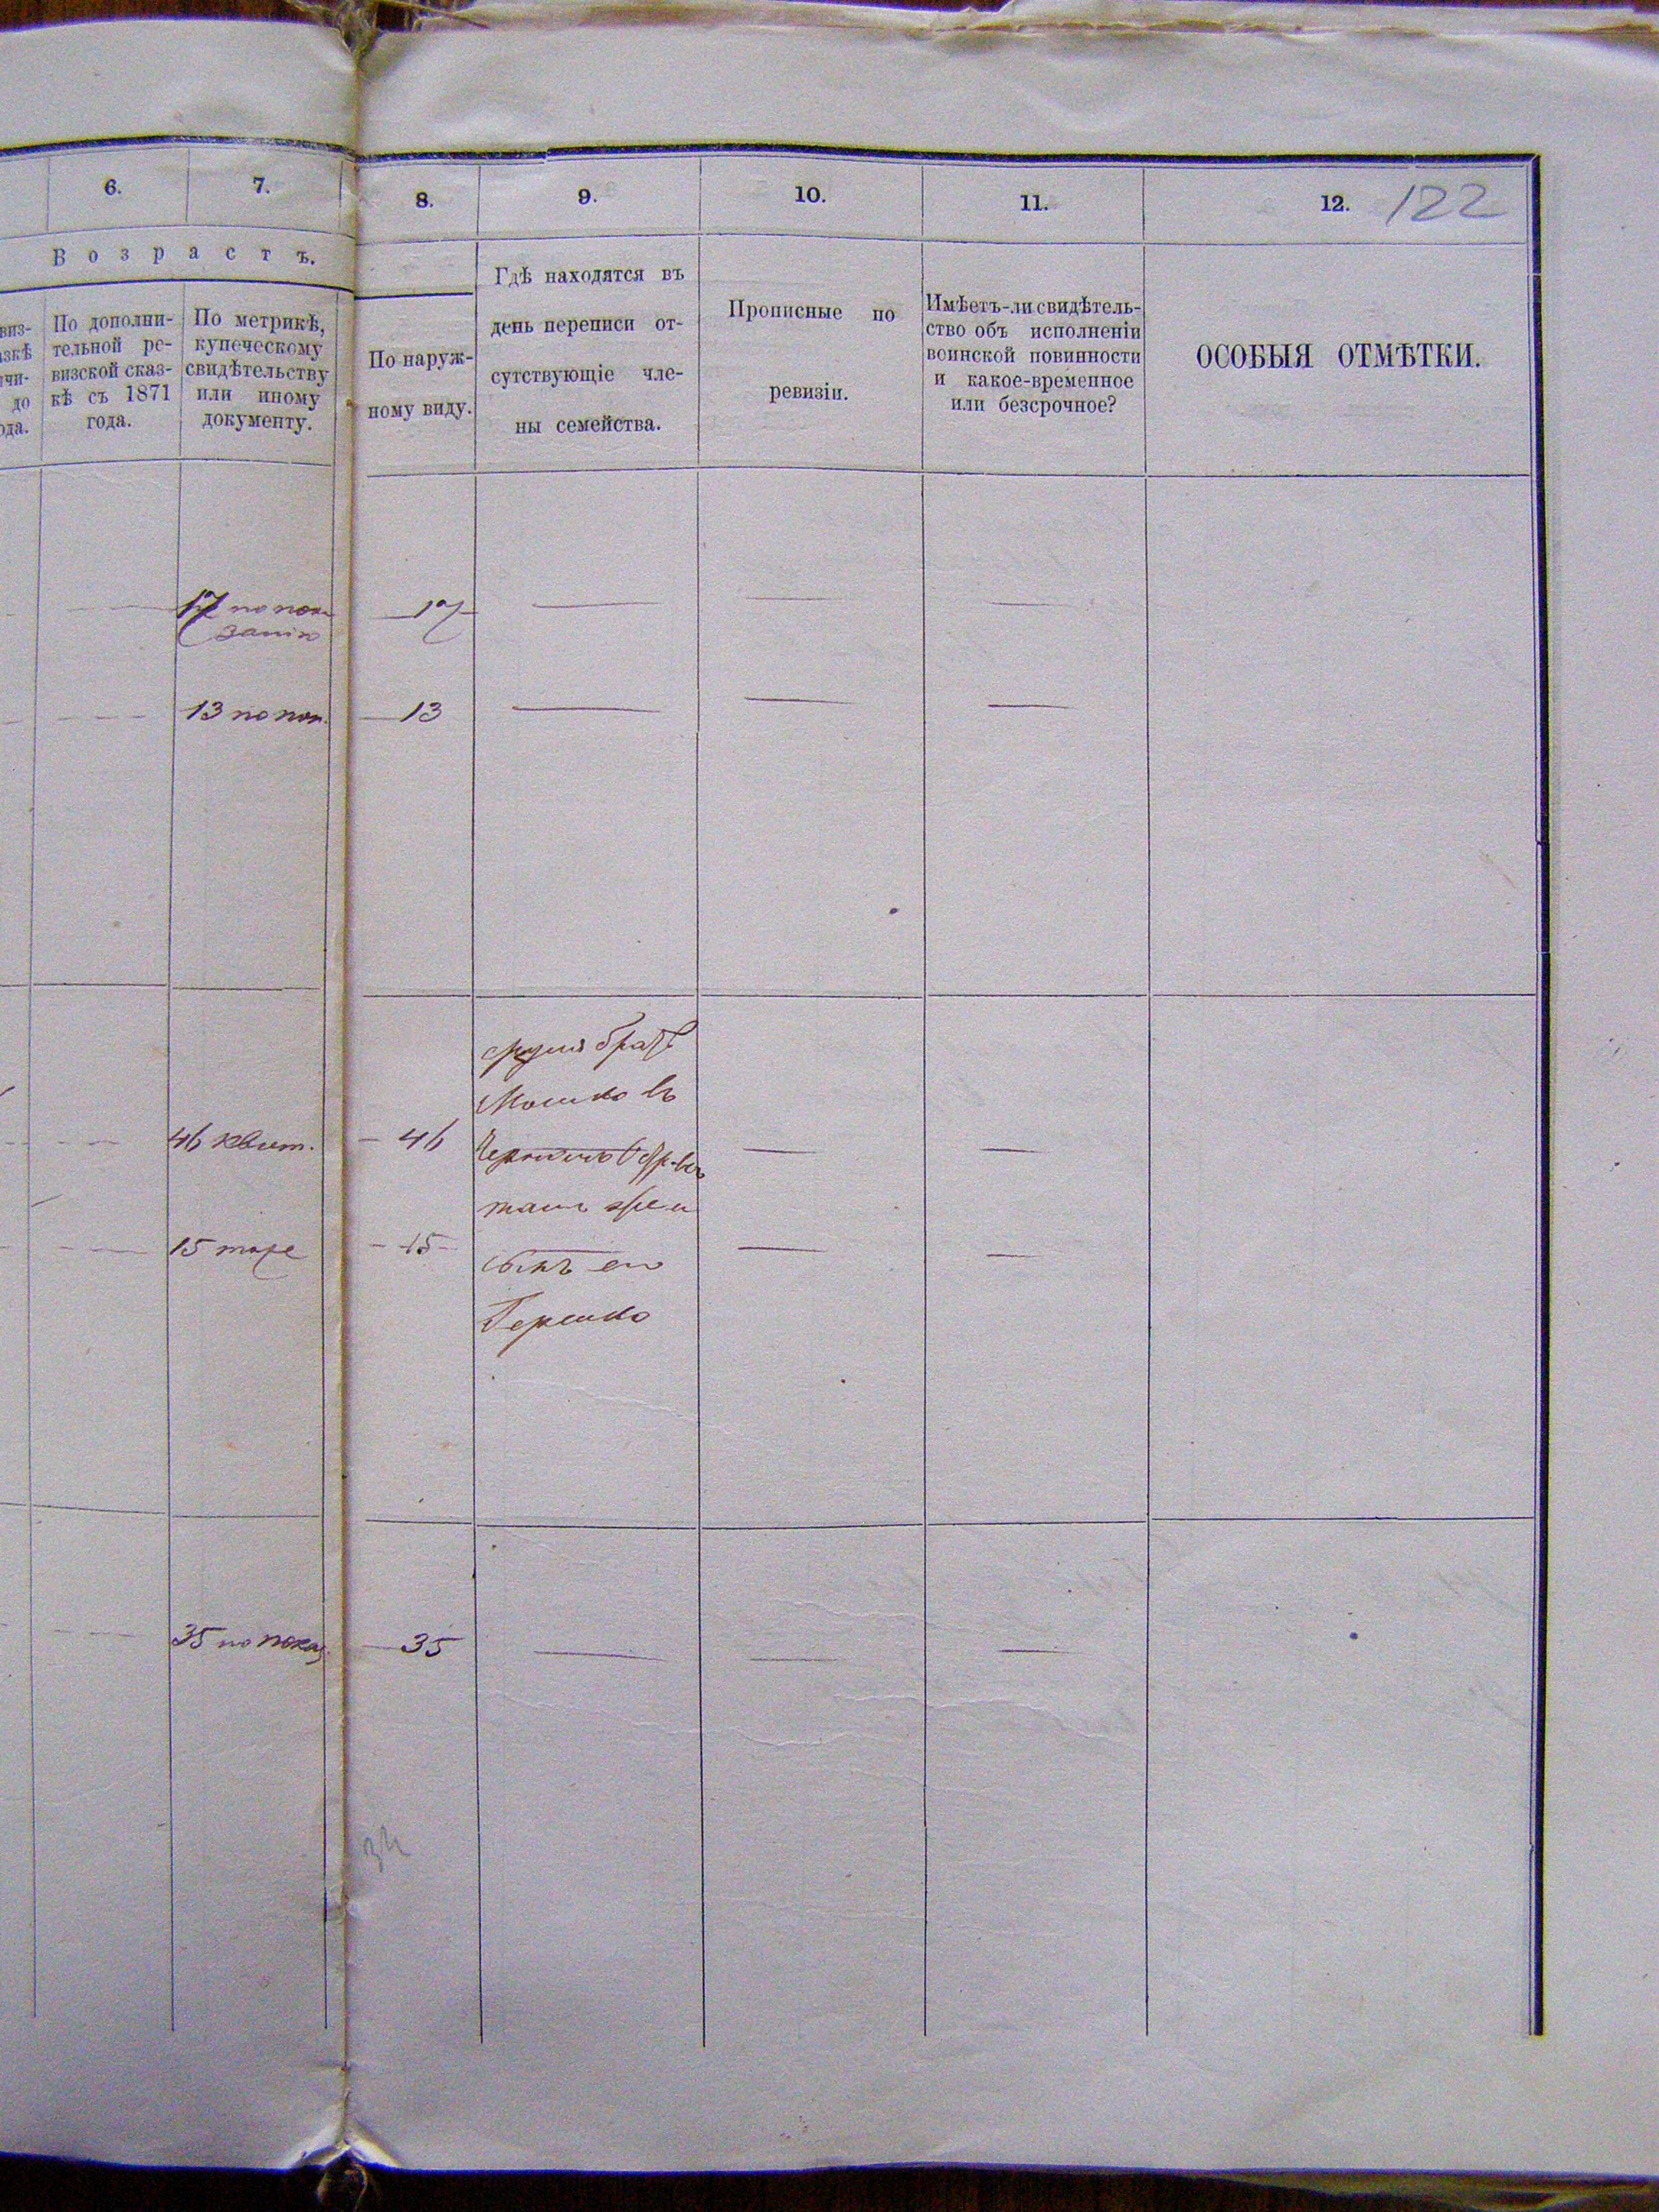 6.
7.
8.
9.
10.
11.
12.
122
Возрастъ.
виз-
зкѣ
чи-
до
ода.
По дополни-
тельной ре-
визской сказ-
кѣ съ 1871
года.
По метрикѣ,
купеческому
свидѣтельству
или иному
документу.
По наруж-
ному виду.
Гдѣ находятся въ
день переписи от-
сутствующіе чле-
ны семейства.
Прописные по
ревизіи.
Имѣетъ-ли свидѣтель-
ство объ исполненіи
воинской повинности
и какое-временное
или безсрочное?
ОСОБЫЯ ОТМѢТКИ.
17 по пока
занію
17
13 по пок.
13
братъ
Мошко въ
46 квит.
46
15 тоже
15
сынъ его
Гершко
35 по показ.
35